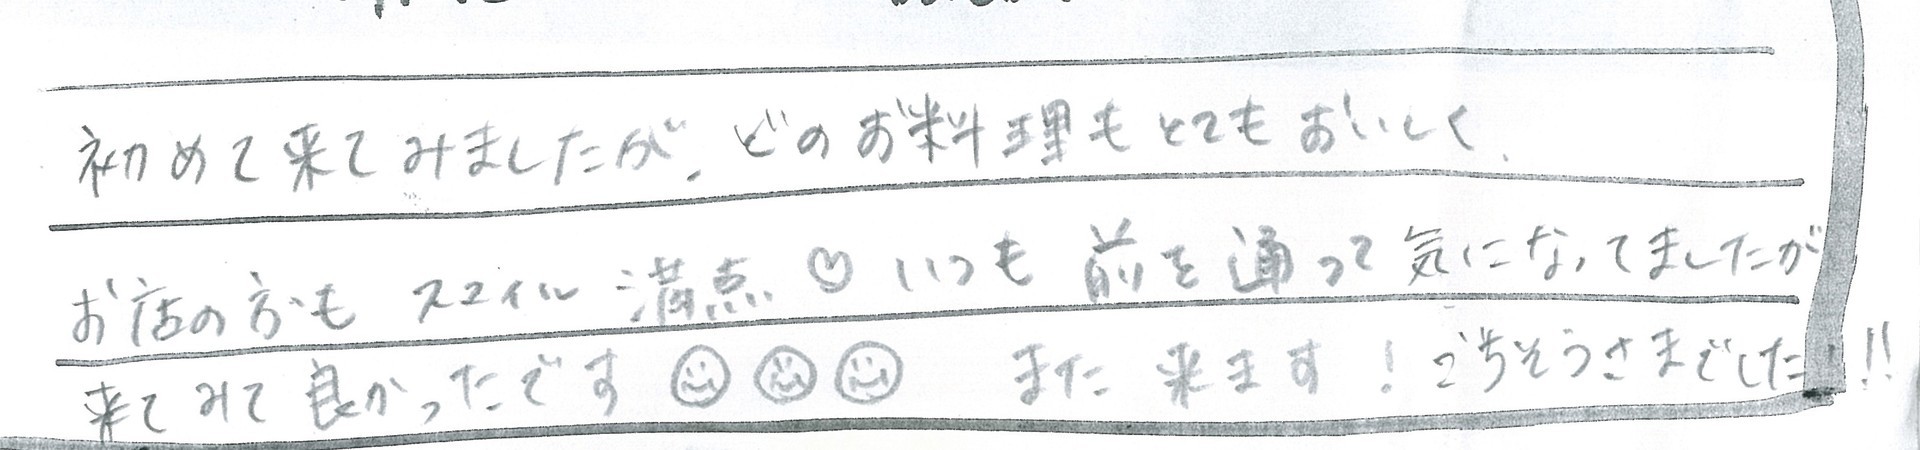 初めて来てみましたが、どのお料理もとてもおいしく、
お店の方も スマイル 満点 ♡ いつも 前を通って気になってましたが
来てみて良かったです ☺☺☺ また来ます！ごちそうさまでした!!!